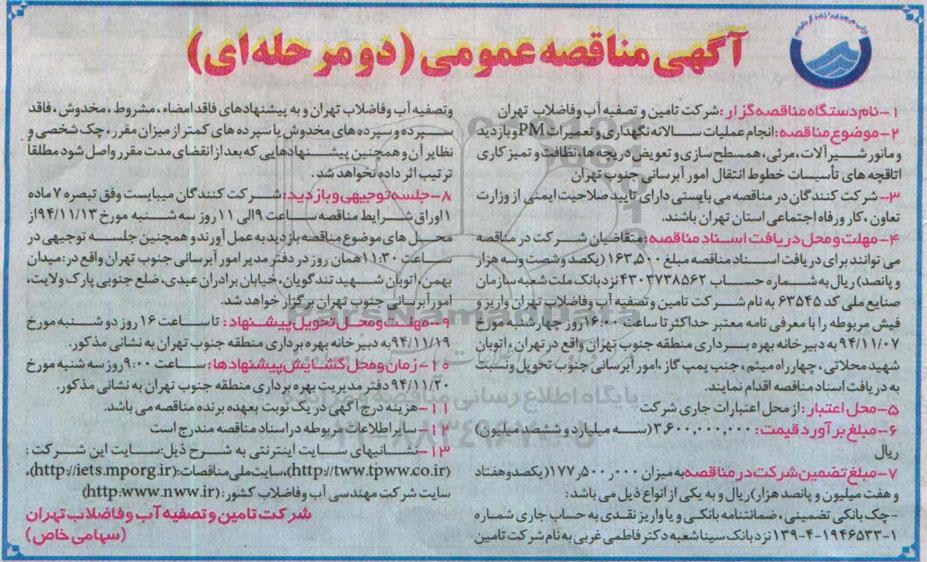 آگهی مناقصه عمومی (دو مرحله ای)
۱- نام دستگاه مناقصه گزار: شرکت تامین و تصفیه آب و فاضلاب تهران
۲- موضوع مناقصه: انجام عملیات سالانه نگهداری و تعمیرات PM و بازدید
و مانور شیرآلات، مرئی، همسطح سازی و تعویض دریچه ها، نظافت و تمیز کاری
اتاقچه های تأسیسات خطوط انتقال امور آبرسانی جنوب تهران
۳- شرکت کنندگان در مناقصه می بایستی دارای تایید صلاحیت ایمنی از وزارت
تعاون، کار و رفاه اجتماعی استان تهران باشند.
۴- مهلت و محل دریافت اسناد مناقصه: متقاضیان شرکت در مناقصه
می توانند برای دریافت اسناد مناقصه مبلغ ۱۶۳,۵۰۰ (یکصد و شصت و سه هزار
و پانصد) ریال به شماره حساب ۴۳۰۲۷۳۸۵۶۲ نزد بانک ملت شعبه سازمان
صنایع ملی کد ۶۳۵۴۵ به نام شرکت تامین و تصفیه آب و فاضلاب تهران واریز و
فیش مربوطه را با معرفی نامه معتبر حداکثر تا ساعت ۱۶:۰۰ روز چهارشنبه مورخ
۹۴/۱۱/۰۷ به دبیرخانه بهره برداری منطقه جنوب تهران واقع در تهران، اتوبان
شهید محلاتی، چهارراه میثم، جنب پمپ گاز، امور آبرسانی جنوب تحویل و نسبت
به دریافت اسناد مناقصه اقدام نمایند.
۵- محل اعتبار: از محل اعتبارات جاری شرکت
۶- مبلغ برآورد قیمت: ۳,۶۰۰,۰۰۰,۰۰۰ (سه میلیارد و ششصد میلیون)
ریال
۷- مبلغ تضمین شرکت در مناقصه به میزان ۱۷۷,۵۰۰,۰۰۰ (یکصد و هفتاد
و هفت میلیون و پانصد هزار) ریال و به یکی از انواع ذیل می باشد:
- چک بانکی تضمینی، ضمانتنامه بانکی و یا واریز نقدی به حساب جاری شماره
۱-۱۹۴۶۵۳۳-۴-۱۳۹ نزد بانک سینا شعبه دکتر فاطمی غربی به نام شرکت تامین
و تصفیه آب و فاضلاب تهران و به پیشنهادهای فاقد امضاء، مشروط، مخدوش، فاقد
سپرده و سپرده های مخدوش یا سپرده های کمتر از میزان مقرر، چک شخصی و
نظایر آن و همچنین پیشنهادهایی که بعد از انقضای مدت مقرر واصل شود مطلقا
ترتیب اثر داده نخواهد شد.
۸- جلسه توجیهی و بازدید: شرکت کنندگان میبایست وفق تبصره ۷ ماده
۱ اوراق شرایط مناقصه ساعت ۹ الی ۱۱ روز سه شنبه مورخ ۹۴/۱۱/۱۳ از
محل های موضوع مناقصه بازدید به عمل آورند و همچنین جلسه توجیهی در
ساعت ۱۱:۳۰ همان روز در دفتر مدیر امور آبرسانی جنوب تهران واقع در: میدان
بهمن، اتوبان شهید تندگویان، خیابان برادران عبدی، ضلع جنوبی پارک ولایت،
امور آبرسانی جنوب تهران برگزار خواهد شد.
۹- مهلت و محل تحویل پیشنهاد: تا ساعت ۱۶ روز دوشنبه مورخ
۹۴/۱۱/۱۹ به دبیرخانه بهره برداری منطقه جنوب تهران به نشانی مذکور.
۱۰- زمان و محل گشایش پیشنهادها: ساعت ۹:۰۰ روز سه شنبه مورخ
۹۴/۱۱/۲۰ دفتر مدیریت بهره برداری منطقه جنوب تهران به نشانی مذکور.
۱۱- هزینه درج آگهی در یک نوبت بعهده برنده مناقصه می باشد.
۱۲- سایر اطلاعات مربوطه در اسناد مناقصه مندرج است
۱۳- نشانیهای سایت اینترنتی به شرح ذیل: سایت این شرکت:
(http://tww.tpww.co.ir)، سایت ملی مناقصات: (http://iets.mporg.ir)،
سایت شرکت مهندسی آب و فاضلاب کشور: (http:www.nww.ir)
شرکت تامین و تصفیه آب و فاضلاب تهران
(سهامی خاص)
ParsNamadData
پایگاه اطلاع رسانی مناقصه و مزایده